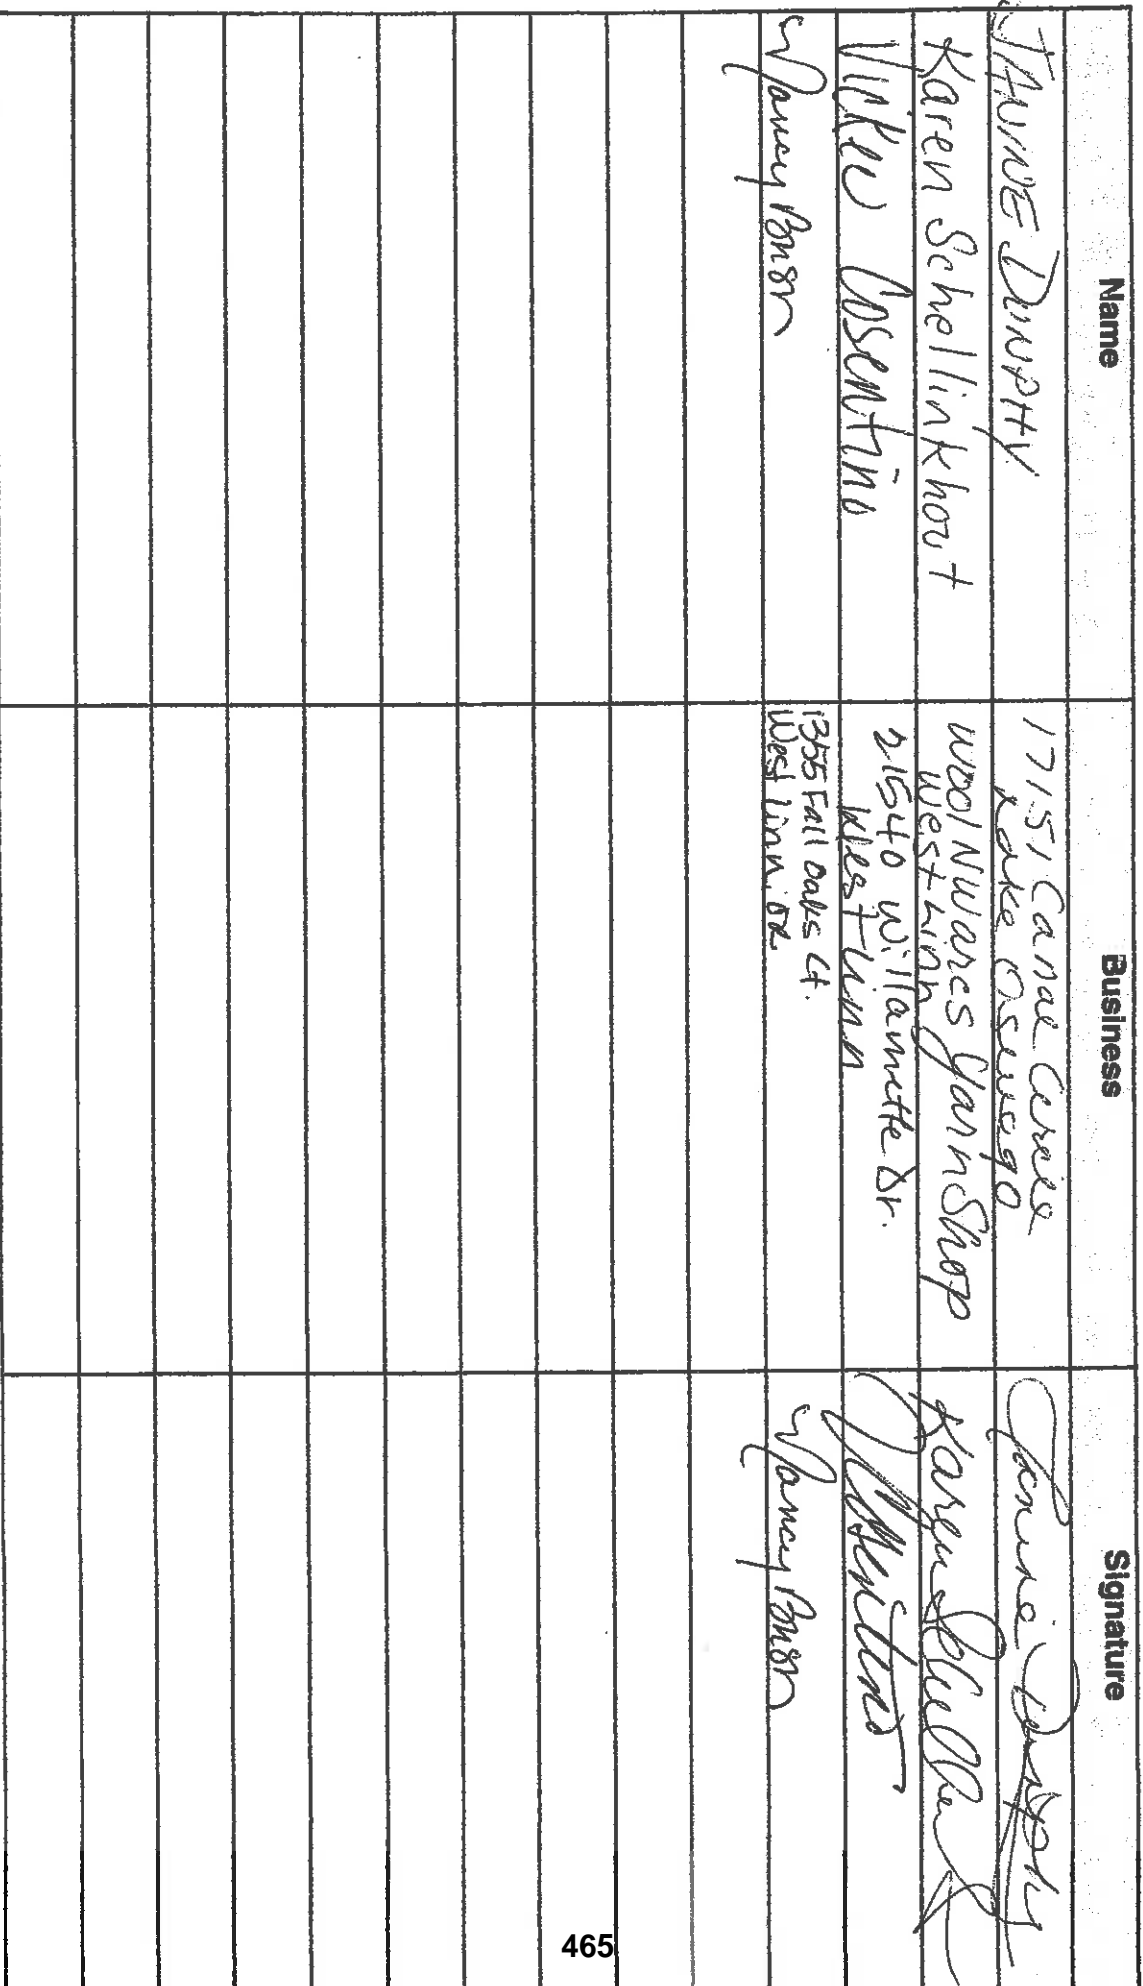 Name Business Signature
JANINE DUNPHY 17151 Canal Circle
Lake Oswego Janine Dunphy
Karen Schellinkhout Wool N Wares Yarn Shop
West Linn Karen
Vickie Cosentino 21540 Willamette Dr.
West Linn
Nancy 1355 Fall Oaks Ct.
West Linn, OR Nancy
465